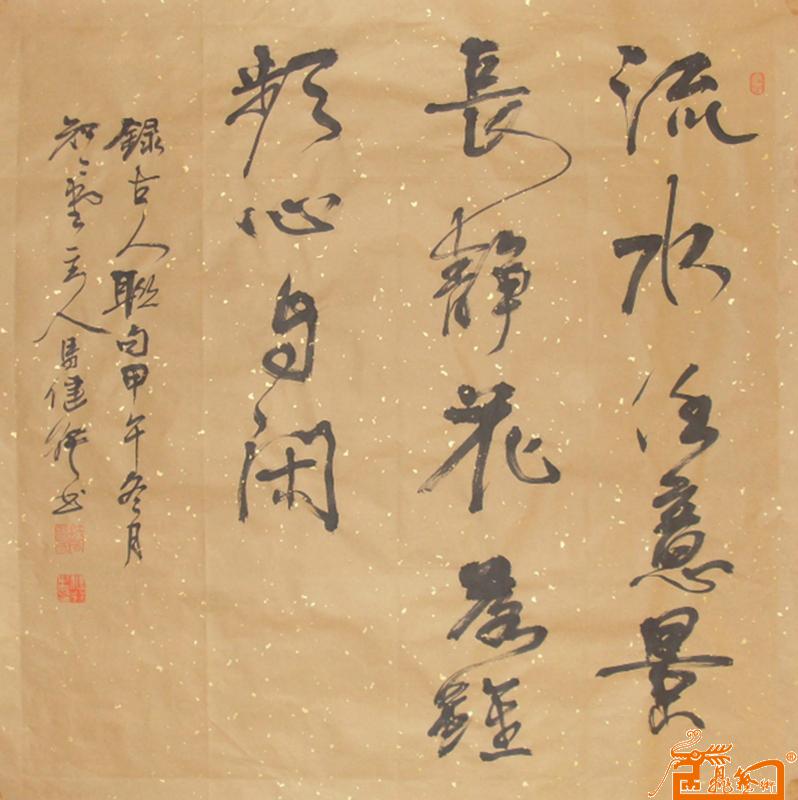 流水任意景
長靜花落雖
頻心自閑
録古人聯句甲午冬月
主人馬健書